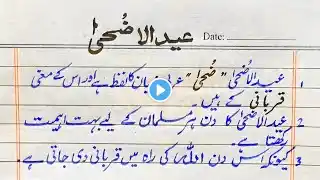 عیدالاضحیٰ Date:
1 عیدالاضحیٰ "ضحیٰ" عربی زبان کا لفظ ہے اور اس کے معنی
قربانی کے ہیں۔
2 عیدالاضحیٰ کا دن ہر مسلمان کے لیے بہت اہمیت
رکھتا ہے۔
3 کیونکہ اس دن اللہ کی راہ میں قربانی دی جاتی ہے۔